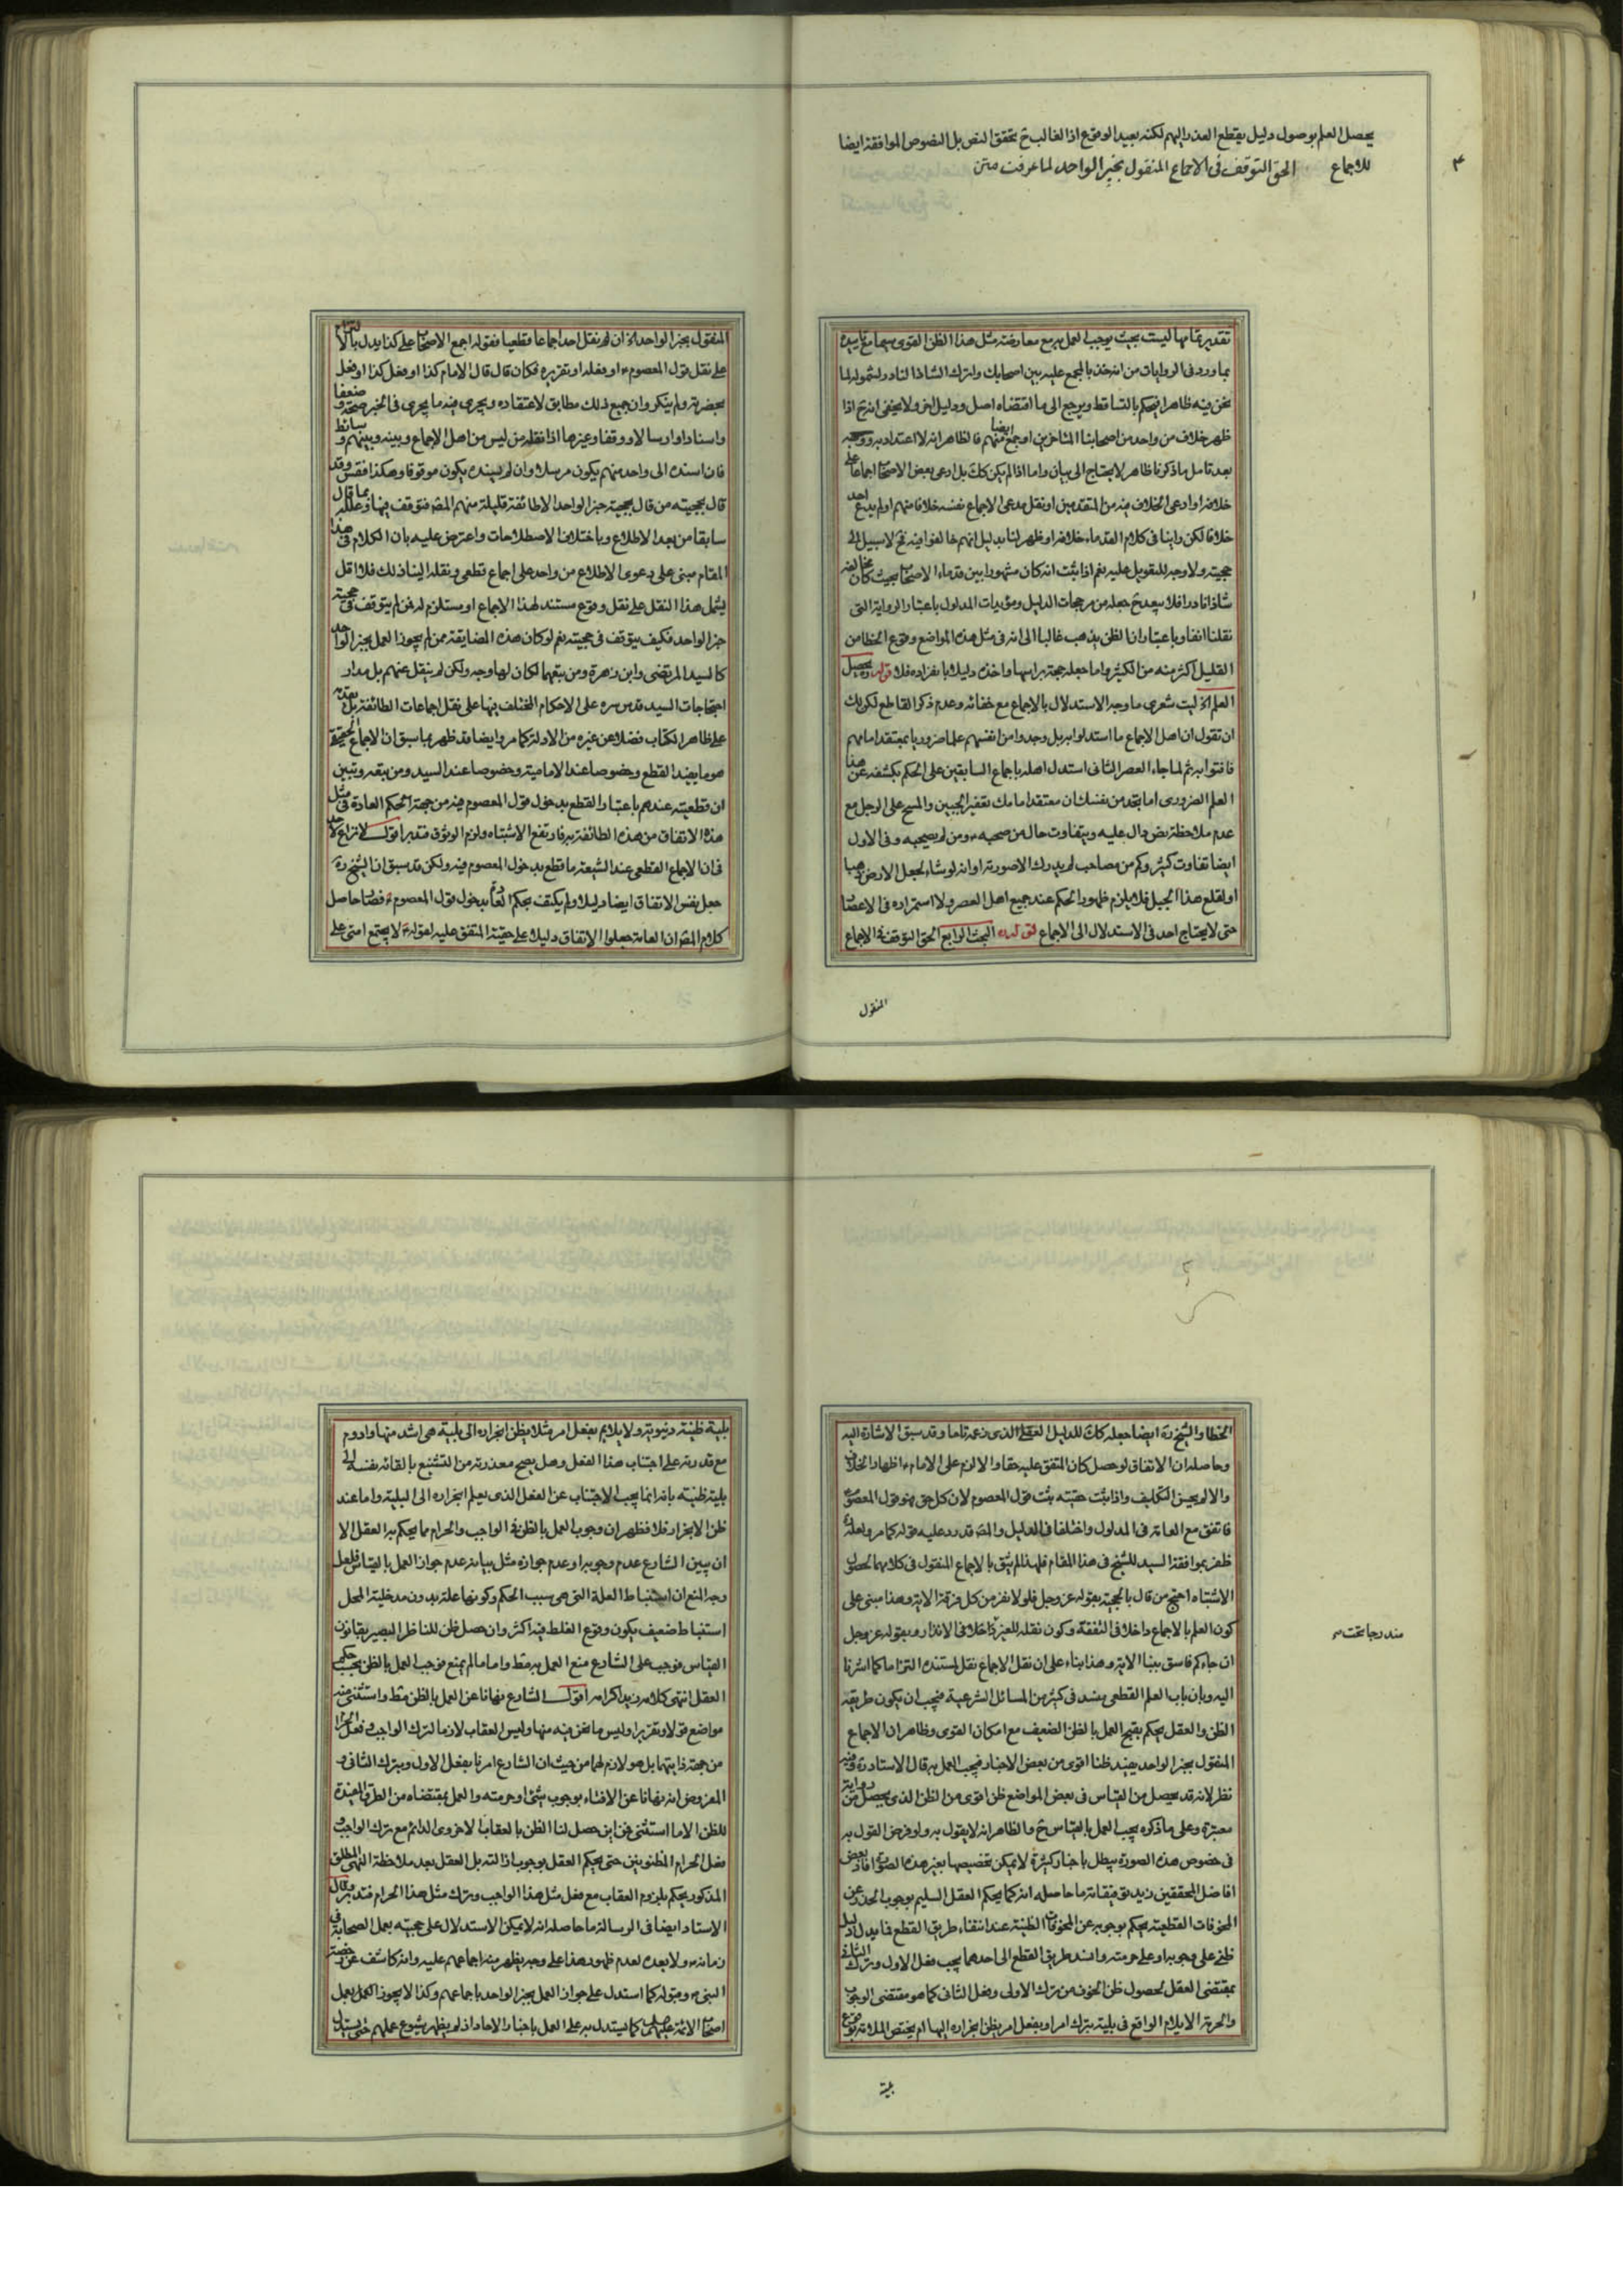 يحصل العلم بوصول دليل يقطع العذر اليهم لكنه بعيد الوقوع اذ الغالب ح تحقق النص بل النصوص الموافقة ايضا
للاجماع الحق التوقف فى الاجماع المنقول بخبر الواحد لما عرفت متن
٣
تقدير تمامها ليست بحيث يوجب العمل به مع معارضته مثل هذا الظن القوى سيما مع تاييده
بما ورد فى الروايات من انه خذ بالمجمع عليه بين اصحابك واترك الشاذ النادر لشموله لما
نحن فيه ظاهرا فيحكم بالتساقط ويرجع الى ما اقتضاه اصل ودليل اخر ولا يخفى انه ح اذا
ظهر خلاف من واحد من اصحابنا المتاخرين او جمع منهم ايضا فالظاهر انه لا اعتداد به ووجهه
بعد تامل ما ذكرنا ظاهر لا يحتاج الى بيان واما اذا لم يكن كك بل ادعى بعض الاصحاب اجماعا على
خلافه او ادعى الخلاف فيه من المتقدمين او نقل مدعى الاجماع نفسه خلافا منهم او لم يدع احد
خلافا لكن راينا فى كلام القدماء خلافه او ظهر لنا بدليل انهم خالفوا فيه فح لا سبيل الى
حجيته ولا وجه للتعويل عليه نعم اذا ثبت انه كان مشهورا بين قدماء الاصحاب بحيث كان مخالفه
شاذا نادرا فلا يبعد ح جعله من مرجحات الدليل ومؤيدات المدلول باعتبار الرواية التى
نقلنا انفا وباعتبار ان الظن يذهب غالبا الى انه فى مثل هذه المواضع وقوع الخطا من
القليل اكثر منه من الكثير واما جعله حجة براسها واخذه دليلا بانفراده فلا قوله ويحصل
العلم اه ليت شعرى ما وجه الاستدلال بالاجماع مع خفائه وعدم ذكر القاطع لكن لك
ان تقول ان اصل الاجماع ما استدلوا به بل وجدوا من انفسهم علما ضروريا بمعتقد امامهم
فافتوا به ثم لما جاء العصر الثانى استدل اهله باجماع السابقين على الحكم بكشفه عن هذا
العلم الضرورى اما تجد من نفسك ان معتقد امامك تعفير الجبين والمسح على الرجل مع
عدم ملاحظة نص دال عليه ويتفاوت حال من صحبه ومن لم يصحبه وفى الاول
ايضا تفاوت كثير وكم من مصاحب لم يدرك الا صورته او انه لو شاء لجعل الارض ذهبا
او لقلع هذا الجبل فلا يلزم ظهور الحكم عند جميع اهل العصر ولا استمراره فى الاعصار
حتى لا يحتاج احد فى الاستدلال الى الاجماع البحث الرابع الحق التوقف فى الاجماع
المنقول
المنقول بخبر الواحد اه ان لم ينقل احد اجماعا قطعيا فقوله اجمع الاصحاب على كذا يدل بالالتزام
على نقل قول المعصوم او فعله او تقريره فكان قال قال الامام كذا او فعل كذا او فعل
بحضرته ولم ينكر وان جميع ذلك مطابق لاعتقاده ويجرى فيه ما يجرى فى الخبر صحة وضعفا
واسنادا وارسالا ووقفا وغيرها اذا نقله من ليس من اهل الاجماع وبينه وبينهم وسائط
فان اسنده الى واحد منهم يكون مرسلا وان لم يسنده يكون موقوفا وهكذا فقس وقد
قال بحجيته من قال بحجية خبر الواحد الا طائفة قليلة منهم المصنف فتوقف فيها وعلله بما قال
سابقا من بعد الاطلاع وباختلاف الاصطلاحات واعترض عليه بان الكلام فى هذا
المقام مبنى على دعوى الاطلاع من واحد على اجماع قطعى ونقله الينا ذلك فلا اقل
يشمل هذا النقل على نقل وقوع مستند لهذا الاجماع او مستلزم له فمن لم يتوقف فى حجية
خبر الواحد فكيف يتوقف فى حجيته نعم لو كان هذه المضايقة ممن لم يجوز العمل بخبر الواحد
كالسيد المرتضى وابن زهرة ومن يتبعهما لكان لها وجه ولكن لم ينقل عنهم بل مدار
احتجاجات السيد قدس سره على الاحكام المختلف فيها على نقل اجماعات الطائفة بل يقدمه
على ظاهر الكتاب فضلا عن غيره من الادلة كما مر وايضا قد ظهر بما سبق ان الاجماع الحقيقى
هو ما يفيد القطع وخصوصا عند الامامية وخصوصا عند السيد ومن تبعه وتبين
ان قطعيته عندهم باعتبار القطع بدخول قول المعصوم فيه من جهة الحكم العادة فى مثل
هذه الاتفاق من هذه الطائفة به فارتفع الاشتباه ولزم الوثوق فتدبر اقول لا نزاع لاحد
فى ان الاجماع القطعى عند الشيعة ما قطع بدخول المعصوم فيه ولكن قد سبق ان الشيخ ره
جعل نفس الاتفاق ايضا دليلا ولم يكتف بحكم العادة بدخول قول المعصوم فصار حاصل
كلام المصنف ان العامة جعلوا الاتفاق دليلا على حقية المتفق عليه لقوله لا يجتمع امتى على
الخطا والشيخ ره ايضا جعله كك للدليل العقلى الذى زعمه تاما وقد سبق الاشارة اليه
وحاصله ان الاتفاق لو حصل كان المتفق عليه حقا والا لزم على الامام اظهار الخلاف
والا لم يحسن التكليف واذا ثبت حقيته ثبت قول المعصوم لان كل حق هو قول المعصوم
فاتفق مع العامة فى المدلول واختلفا فى الدليل والمصنف قد رد عليه قوله كما مر ولعله
ظفر بموافقة السيد للشيخ فى هذا المقام فلهذا لم يثق بالاجماع المنقول فى كلامهما لحصول
الاشتباه احتج من قال بالحجية بقوله عز وجل فلولا نفر من كل فرقة الاية وهذا مبنى على
كون العلم بالاجماع داخلا فى التفقه وكون نقله للغير داخلا فى الانذار وبقوله عز وجل
ان جاءكم فاسق بنبا الاية وهذا بناء على ان نقل الاجماع نقل لمستنده التزاما كما اشرنا
اليه وبان باب العلم القطعى منسد فى كثير من المسائل الشرعية فيجب ان يكون طريقه
الظن والعقل يحكم بقبح العمل بالظن الضعيف مع امكان القوى وظاهر ان الاجماع
المنقول بخبر الواحد يفيد ظنا اقوى من بعض الاخبار فيجب العمل به قال الاستاد ره وفيه
نظر لانه قد يحصل من القياس فى بعض المواضع ظن اقوى من الظن الذى يحصل من رواية
معتبرة وعلى ما ذكره يجب العمل بالقياس ح والظاهر انه لا يقول به ولو فرض القول به
فى خصوص هذه الصورة يبطل باخبار كثيرة لا يمكن تخصيصها بغير هذه الصورة افاد بعض
افاضل المحققين زيد توفيقاته ما حاصله انه كما يحكم العقل السليم بوجوب الحذر عن
المخوفات القطعية يحكم بوجوبه عن المخوفات الظنية عند انتفاء طريق القطع فاذا دل دليل
ظنى على وجوبه او على حرمته وانسد طريق القطع الى احدهما يجب فعل الاول وترك الثانى
بمقتضى العقل لحصول ظن الخوف من ترك الاولى وفعل الثانى كما هو مقتضى الوجوب
والحرمة الا يلام الواقع فى بلية بترك امر او بفعل امر يظن انجراره اليها ام يختص الملامة بوقوع
مندرجا تحت
بلية
بلية ظنية دنيوية ولا يلايم بفعل امر مثلا يظن انجراره الى بلية هى اشد منها وادوم
مع قدرته على اجتناب هذا الفعل وهل يصح معذرته من التشنيع بالقائه نفسه الى
بلية ظنية بانه انما يجب الاجتناب عن الفعل الذى يعلم انجراره الى البلية واما عند
ظن الانجرار فلا فظهر ان وجوب العمل بالظن فى الواجب والحرام مما يحكم به العقل الا
ان يبين الشارع عدم وجوبه او عدم جوازه مثل بيانه عدم جواز العمل بالقياس فلعل
وجه المنع ان استنباط العلة التى هى سبب الحكم وكونها علة بدون مدخلية المحل
استنباط ضعيف يكون وقوع الغلط فيه اكثر وان حصل ظن للناظر البصير بقانون
القياس فوجب على الشارع منع العمل به فقط واما ما لم يمنع فوجب العمل بالظن بحسب حكم
العقل انتهى كلامه زيد اكرامه اقول الشارع نهانا عن العمل بالظن فقط واستثنى منه
مواضع قولا وتقريرا وليس ما نحن فيه منها وليس العقاب لازما لترك الواجب وفعل الحرام
من جهة ذاتيهما بل هو لازم لهما من حيث ان الشارع امرنا بفعل الاول وبترك الثانى و
المفروض انه نهانا عن الافتاء بوجوب شئ او حرمته والعمل بمقتضاه من الطرق المفيدة
للظن الا ما استثنى فمن اين حصل لنا الظن بالعقاب الاخروى الدائم مع ترك الواجب
وفعل الحرام المظنونين حتى يحكم العقل بوجوب ازالته بل العقل بعد ملاحظة النهى المطلق
المذكور يحكم بلزوم العقاب مع فعل مثل هذا الواجب وترك مثل هذا الحرام فتدبر وقال
الاستاد ايضا فى الرسالة ما حاصله انه لا يمكن الاستدلال على حجيته بعمل الصحابة فى
زمانه ولا بعده لعدم ظهور هذا على وجه يظهر منه اجماعهم عليه وانه كاشف عن رخصة
النبى وقوله كما استدل على جواز العمل بخبر الواحد باجماعهم وكذا لا يجوز العمل بعمل
اصحاب الائمة كما يستدل به على العمل باخبار الاحاد اذ لم يظهر شيوع عملهم حتى يستدل